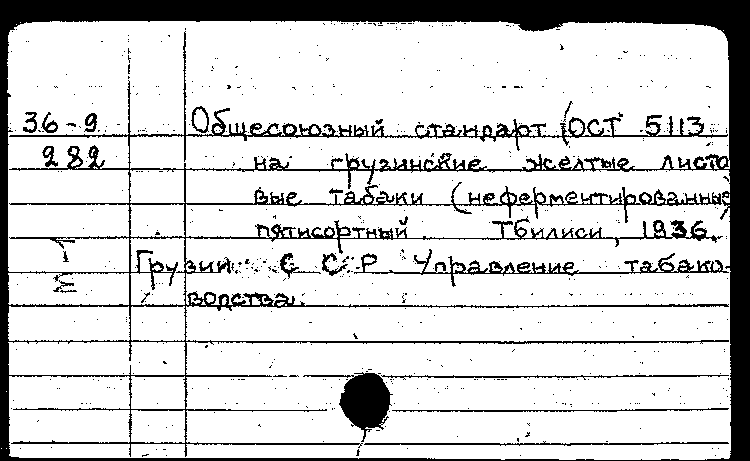 36-9 Общесоюзный стандарт (ОСТ 5113
282 на грузинские желтые листо
вые табаки (неферментированные)
пятисортный. Тбилиси, 1936.
Грузин. С С Р. Управление табако-
водства.